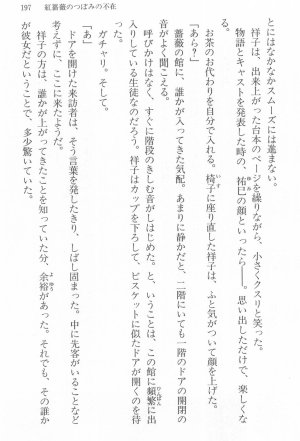 197　紅薔薇のつぼみの不在
とにはなかなかスムーズには進まない。
　祥子は、出来上がった台本のページを繰りながら、小さくクスリと笑った。
物語とキャストを発表した時の、祐巳の顔といったら――。思い出しただけで、楽しくな
る。
　お茶のお代わりを自分で入れる。椅子に座り直した祥子は、ふと気がついて顔を上げた。
「あら？」
　薔薇の館に、誰かが入ってきた気配。あまりに静かだと、二階にいても一階のドアの開閉の
音がよく聞こえる。
　呼びかけはなく、すぐに階段のきしむ音がしはじめた。と、いうことは、この館に頻繁に出
入りしている生徒なのだろう。祥子はカップを下ろして、ビスケットに似たドアが開くのを待
った。
　ガチャリ。そして。
「あ」
　ドアを開けた来訪者は、そう言葉を発したきり、しばし固まった。中に先客がいることなど
考えずに、ここに来たようだ。
　祥子の方は、誰かが上がってきたことを知っていた分、余裕があった。それでも、その誰か
が彼女だということで、多少驚いていた。